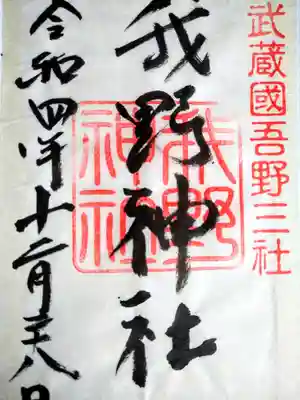 武蔵國吾野三社
我野神社
我野
神社
令和四年十二月廿八日